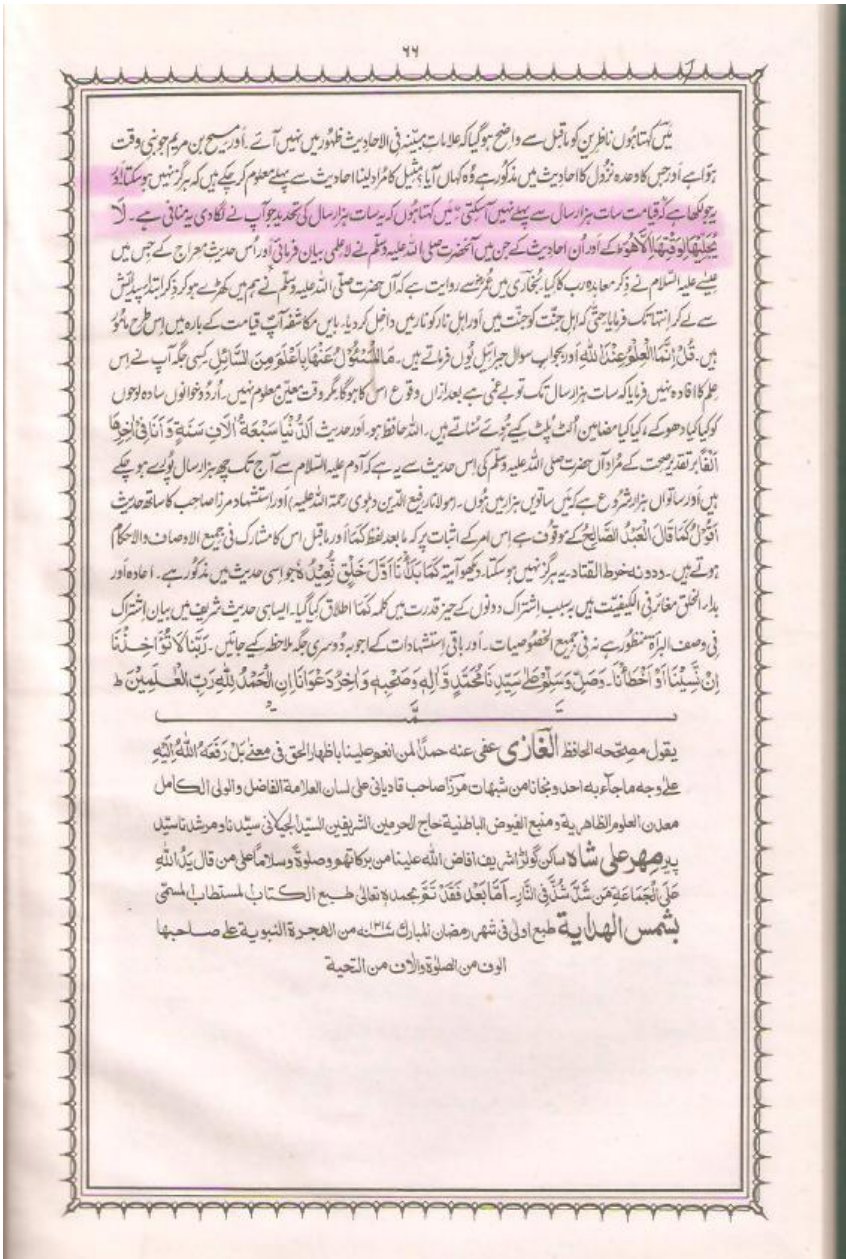 ۶۶
میں کہتا ہوں ناظرین کو ماقبل سے واضح ہو گیا کہ علاماتِ مبیّنہ فی الاحادیث ظہور میں نہیں آئے۔ اور مسیح بن مریم جو نبی وقت
ہوا ہے اور جس کا وعدہ نزول کا احادیث میں مذکور ہے وُہ کہاں آیا؟ مثیل کا مُراد لینا احادیث سے پہلے معلوم کر چکے ہیں کہ ہرگز نہیں ہو سکتا۔ اَور
یہ جو لکھا ہے کہ قیامت سات ہزار سال سے پہلے نہیں آسکتی" میں کہتا ہوں کہ یہ سات ہزار سال کی تحدید جو آپ نے لگا دی یہ منافی ہے۔ لَا
یُجَلِّیْھَا لِوَقْتِھَا اِلَّا ھُوَ ط کے اَور اُن احادیث کے جن میں آنحضرت صلی اللہ علیہ وسلّم نے لاعلمی بیان فرمائی اَور اُس حدیث معراج کے جس میں
عیسٰے علیہ السلام نے ذکر معاہدہ رب کا کیا۔ بُخاری میں عُمرؓ سے روایت ہے کہ آں حضرت صلّی اللہ علیہ وسلّم نے ہم میں کھڑے ہو کر ذکر ابتدا پیدائش
سے لے کر انتہا تک فرمایا حتّٰی کہ اہلِ جنّت کو جنّت میں اَور اہلِ نار کو نار میں داخل کر دیا۔ باایں مکاشفہ آپؐ قیامت کے بارہ میں اِس طرح مامُور
ہیں۔ قُلْ اِنَّمَا الْعِلْمُ عِنْدَ اللّٰهِ اَور بجواب سوال جبرائیل یُوں فرماتے ہیں۔ مَا الْمَسْئُوْلُ عَنْھَا بِاَعْلَمَ مِنَ السَّائِلِ کسی جگہ آپ نے اِس
عِلم کا افادہ نہیں فرمایا کہ سات ہزار سال تک تو بے غمی ہے بعد ازاں وقوع اس کا ہوگا، مگر وقت معیّن معلوم نہیں۔ اُردو خوانوں سادہ لوحوں
کو کیا کیا دھوکے، کیا کیا مضامین اُلٹ پُلٹ کیے ہُوئے سُناتے ہیں۔ اللہ حافظ ہو۔ اَور حدیث اَلدُّنْیَا سَبْعَةُ اٰلَافِ سَنَةٍ وَّ اَنَا فِیْ اٰخِرِھَا
اَلْفًا بر تقدیر صحت کے مُراد آں حضرت صلی اللہ علیہ وسلّم کی اِس حدیث سے یہ ہے کہ آدم علیہ السّلام سے آج تک چھ ہزار سال پُورے ہو چکے
ہیں اَور ساتواں ہزار شُروع ہے کہ میں ساتویں ہزار میں ہُوں۔ (مولانا رفیع الدّین دہلوی رحمۃ اللہ علیہ) اَور استشہاد مرزا صاحب کا ساتھ حدیث
اَقُوْلُ کَمَا قَالَ الْعَبْدُ الصَّالِحُ کے موقُوف ہے اِس امر کے اثبات پر کہ ما بعد لفظ کَمَا اَور ماقبل اس کا مشارک فی جمیع الاوصاف والاحکام
ہوتے ہیں۔ ودونہ خرط القتاد۔ یہ ہرگز نہیں ہو سکتا۔ دیکھو آیۃ کَمَا بَدَاْنَا اَوَّلَ خَلْقٍ نُّعِیْدُہٗ جو اسی حدیث میں مذکور ہے۔ اعادہ اَور
بداء الخلق مغائر فی الکیفیّت ہیں بسبب اشتراک دونوں کے حیّز قدرت میں کلمہ کَمَا اطلاق کیا گیا۔ ایسا ہی حدیث شریف میں بیان اشتراک
فی وصف البراۃ منظور ہے نہ فی جمیع الخصُوصیات۔ اَور باقی اِستشہادات کے اجوبہ دُوسری جگہ ملاحظہ کیے جائیں۔ رَبَّنَا لَا تُؤَاخِذْنَا
اِنْ نَّسِیْنَا اَوْ اَخْطَاْنَا۔ وَصَلِّ وَسَلِّمْ عَلٰے سَیِّدِنَا مُحَمَّدٍ وَّاٰلِہٖ وَصَحْبِہٖ وَاٰخِرُ دَعْوَانَا اِنِ الْحَمْدُ لِلّٰهِ رَبِّ الْعٰلَمِیْنَ ط
تَمَّتْ
یقول مصحّحہ الحافظ الغازی عفی عنہ حمدًا لمن انعم علینا باظھار الحق فی معنٰے بَلْ رَّفَعَہُ اللّٰہُ اِلَیْہِ
علٰے وجہ ماجآء بہ احد ونجانا من شبھات مرزا صاحب قادیانی علی لسان العلامۃ الفاضل والولی الکامل
معدن العلوم الظاھریۃ ومنبع الفیوض الباطنیۃ حاج الحرمین الشریفین السیّد الجیلانی سیّدنا ومرشدنا سیّد
پیر مھر علی شاہ ساکن گولڑا شریف افاض اللہ علینا من برکاتھم وصلوۃً وسلامًا علی من قال یَدُ اللّٰهِ
عَلَی الْجَمَاعَةِ مَنْ شَذَّ شُذَّ فِی النَّارِ۔ اَمَّا بَعْد فَقَدْ تَمَّ بحمدہ تعالٰی طبع الکتاب المستطاب المسمّٰی
بشمس الھدایۃ طبع اولٰی فی شھر رمضان المبارک ۱۳۱۷ سنہ من الھجرۃ النبویۃ علٰے صاحبھا
الوف من الصلوۃ والاف من التحیۃ